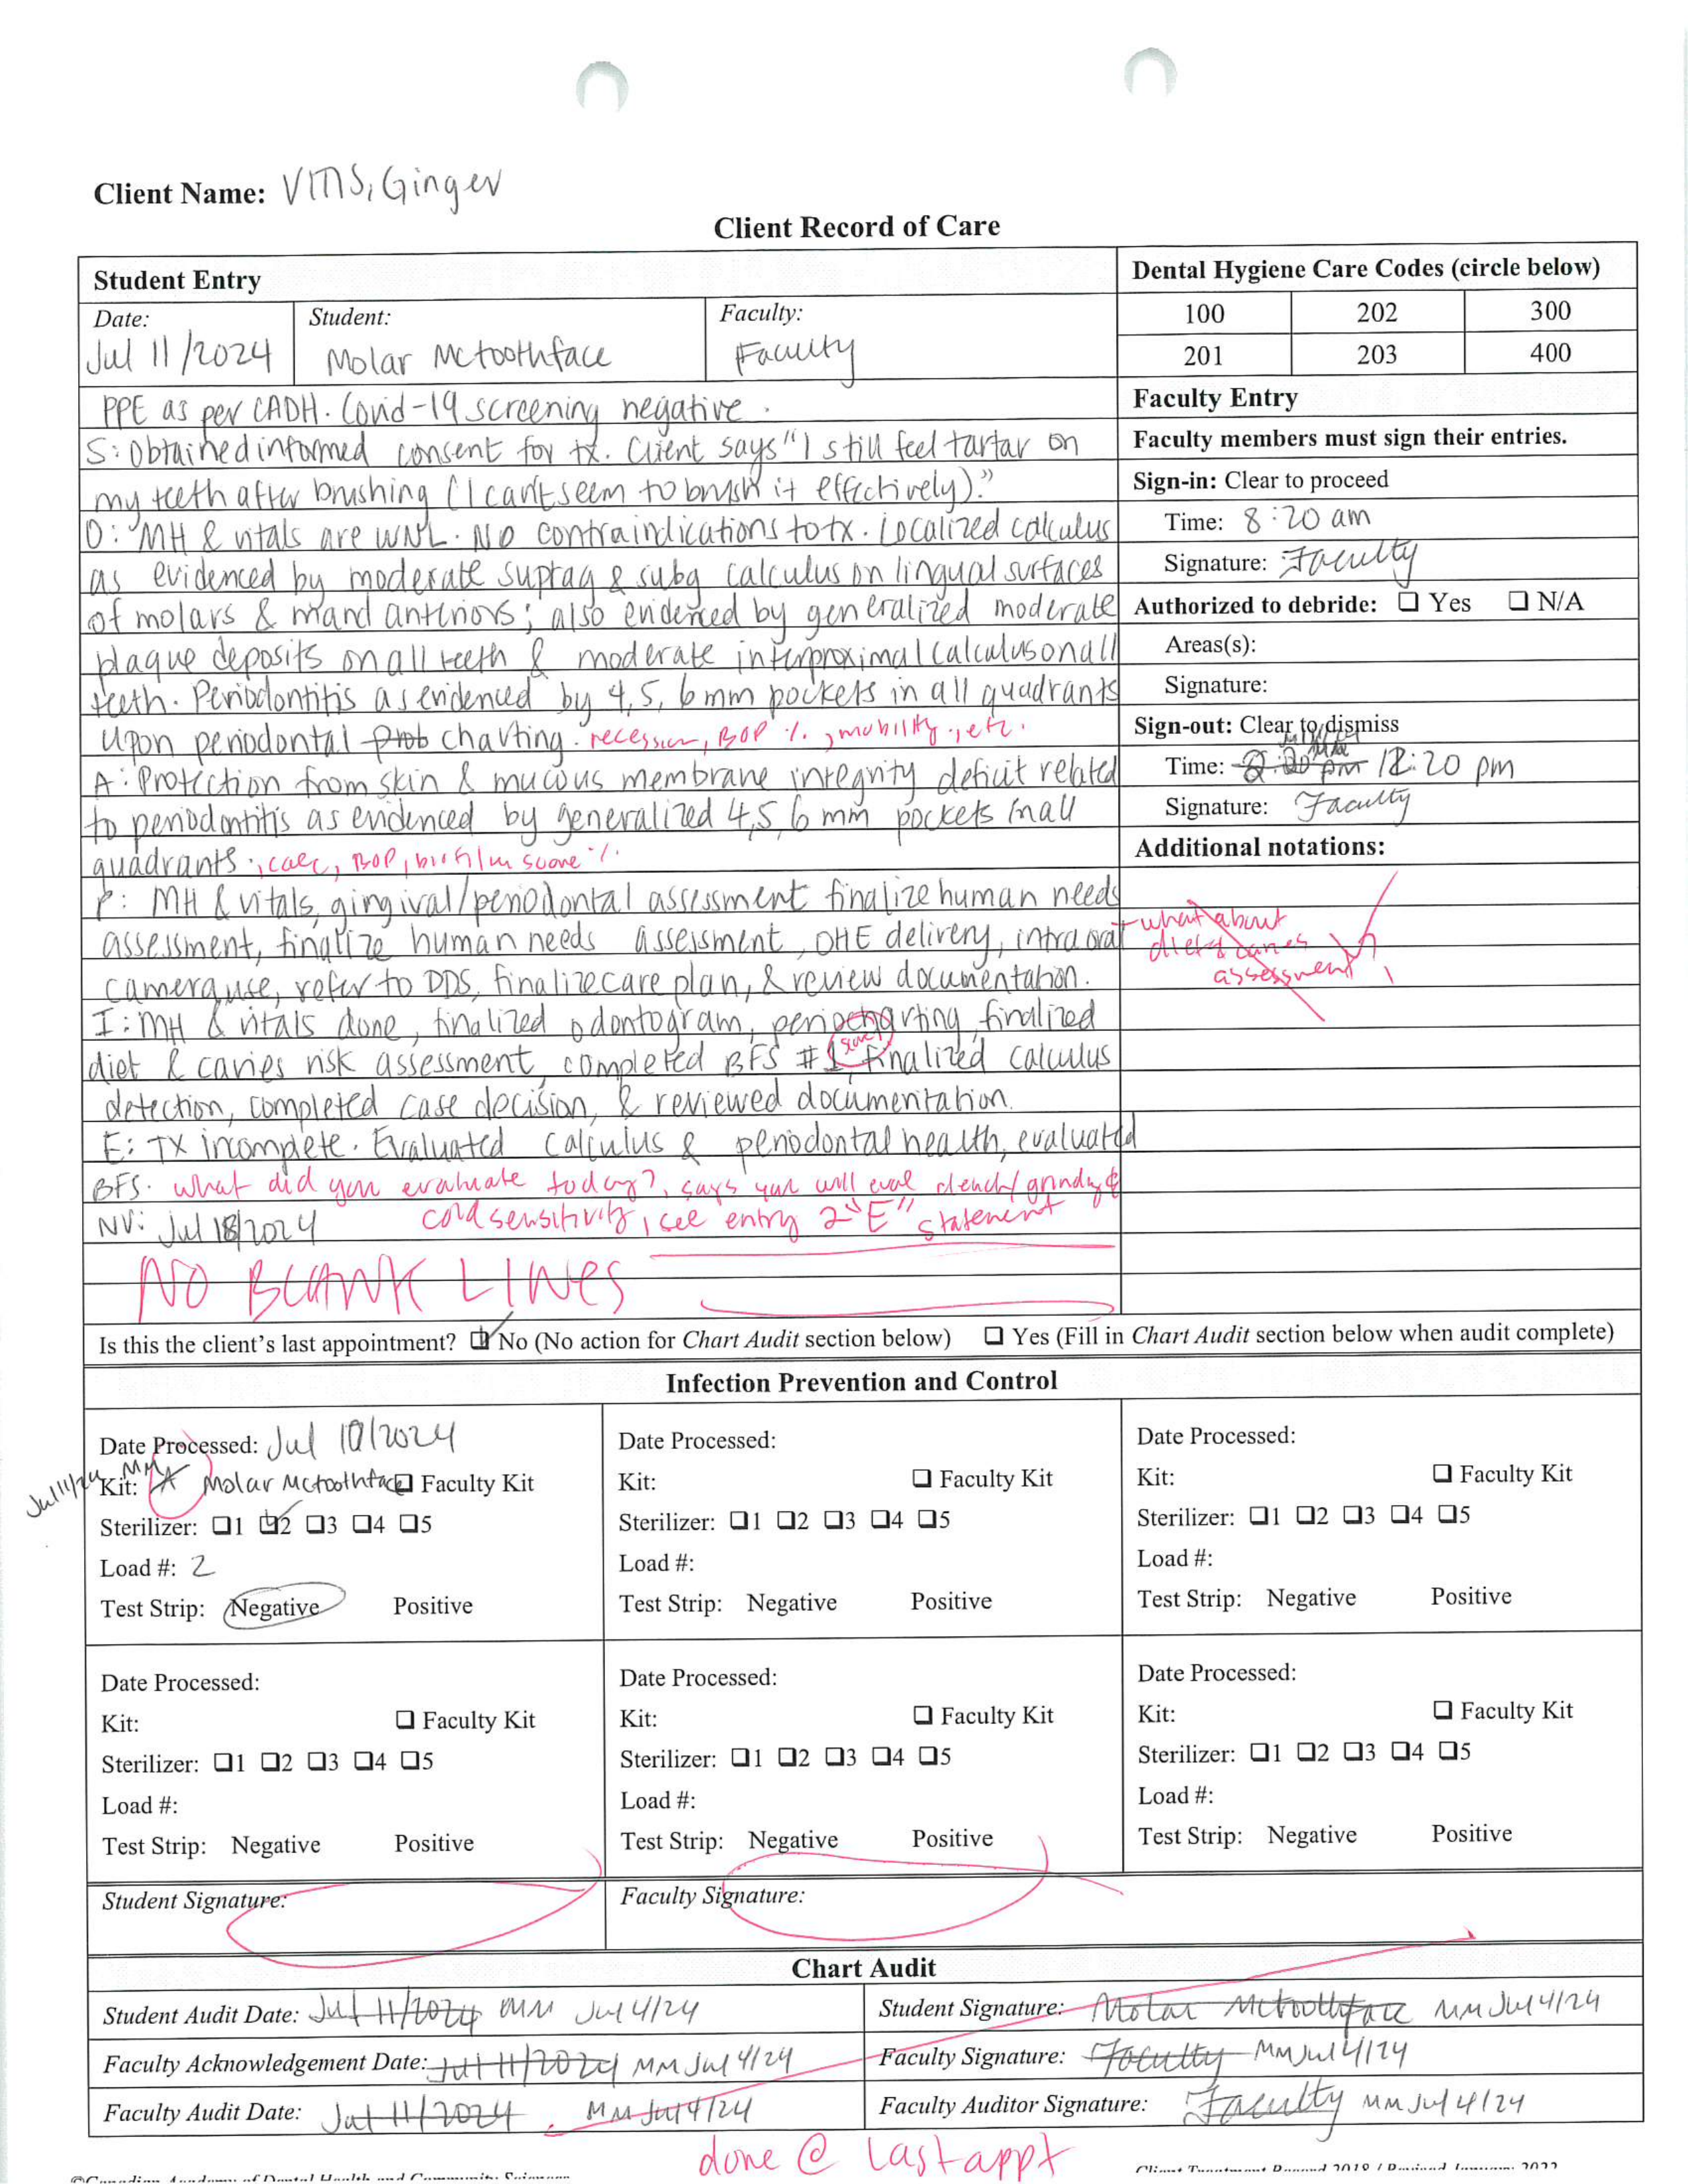 Client Name: VMS, Ginger
Client Record of Care
Student Entry
Dental Hygiene Care Codes (circle below)
Date: Jul 11/2024
Student: Molar Mctoothface
Faculty: Faculty
100 202 300
201 203 400
PPE as per CADH. Covid-19 screening negative.
S: Obtained informed consent for tx. Client says "I still feel tartar on
my teeth after brushing (I can't seem to brush it effectively)."
O: MH & vitals are WNL. No contraindications to tx. Localized calculus
as evidenced by moderate suprag & subg calculus on lingual surfaces
of molars & mand anteriors; also evidenced by generalized moderate
plaque deposits on all teeth & moderate interproximal calculus on all
teeth. Periodontitis as evidenced by 4, 5, 6 mm pockets in all quadrants
upon periodontal prob charting. recession, BOP %, mobility, etc.
A: Protection from skin & mucous membrane integrity deficit related
to periodontitis as evidenced by generalized 4,5,6 mm pockets in all
quadrants, calc, BOP, biofilm score %.
P: MH & vitals, gingival/periodontal assessment finalize human needs
assessment, finalize human needs assessment, OHE delivery, intra oral
camera use, refer to DDS, finalize care plan, & review documentation.
I: MH & vitals done, finalized odontogram, periocharting, finalized
diet & caries risk assessment, completed BFS #1, finalized calculus
detection, completed case decision, & reviewed documentation.
E: TX incomplete. Evaluated calculus & periodontal health, evaluated
BFS. what did you evaluate today?, says you will eval clench/grinding &
cold sensitivity, see entry 2 "E" statement
NV: Jul 18/2024
NO BLANK LINES
Faculty Entry
Faculty members must sign their entries.
Sign-in: Clear to proceed
Time: 8:20 am
Signature: Faculty
Authorized to debride: ❑ Yes ❑ N/A
Areas(s):
Signature:
Sign-out: Clear to dismiss
Time: 12:20 pm
Signature: Faculty
Additional notations:
what about
diet & caries
assessment
Is this the client's last appointment? ❑ No (No action for Chart Audit section below) ❑ Yes (Fill in Chart Audit section below when audit complete)
Infection Prevention and Control
Date Processed: Jul 10/2024
Jul 11/24 MM
Kit: A Molar Mctoothface ❑ Faculty Kit
Sterilizer: ❑1 ❑2 ❑3 ❑4 ❑5
Load #: 2
Test Strip: Negative Positive
Date Processed:
Kit: ❑ Faculty Kit
Sterilizer: ❑1 ❑2 ❑3 ❑4 ❑5
Load #:
Test Strip: Negative Positive
Date Processed:
Kit: ❑ Faculty Kit
Sterilizer: ❑1 ❑2 ❑3 ❑4 ❑5
Load #:
Test Strip: Negative Positive
Date Processed:
Kit: ❑ Faculty Kit
Sterilizer: ❑1 ❑2 ❑3 ❑4 ❑5
Load #:
Test Strip: Negative Positive
Date Processed:
Kit: ❑ Faculty Kit
Sterilizer: ❑1 ❑2 ❑3 ❑4 ❑5
Load #:
Test Strip: Negative Positive
Date Processed:
Kit: ❑ Faculty Kit
Sterilizer: ❑1 ❑2 ❑3 ❑4 ❑5
Load #:
Test Strip: Negative Positive
Student Signature:
Faculty Signature:
Chart Audit
Student Audit Date: Jul 11/2024 MM Jul 4/24
Student Signature: Molar Mctoothface MM Jul 4/24
Faculty Acknowledgement Date: Jul 11/2024 MM Jul 4/24
Faculty Signature: Faculty MM Jul 4/24
Faculty Audit Date: Jul 11/2024 MM Jul 4/24
Faculty Auditor Signature: Faculty MM Jul 4/24
done @ last appt